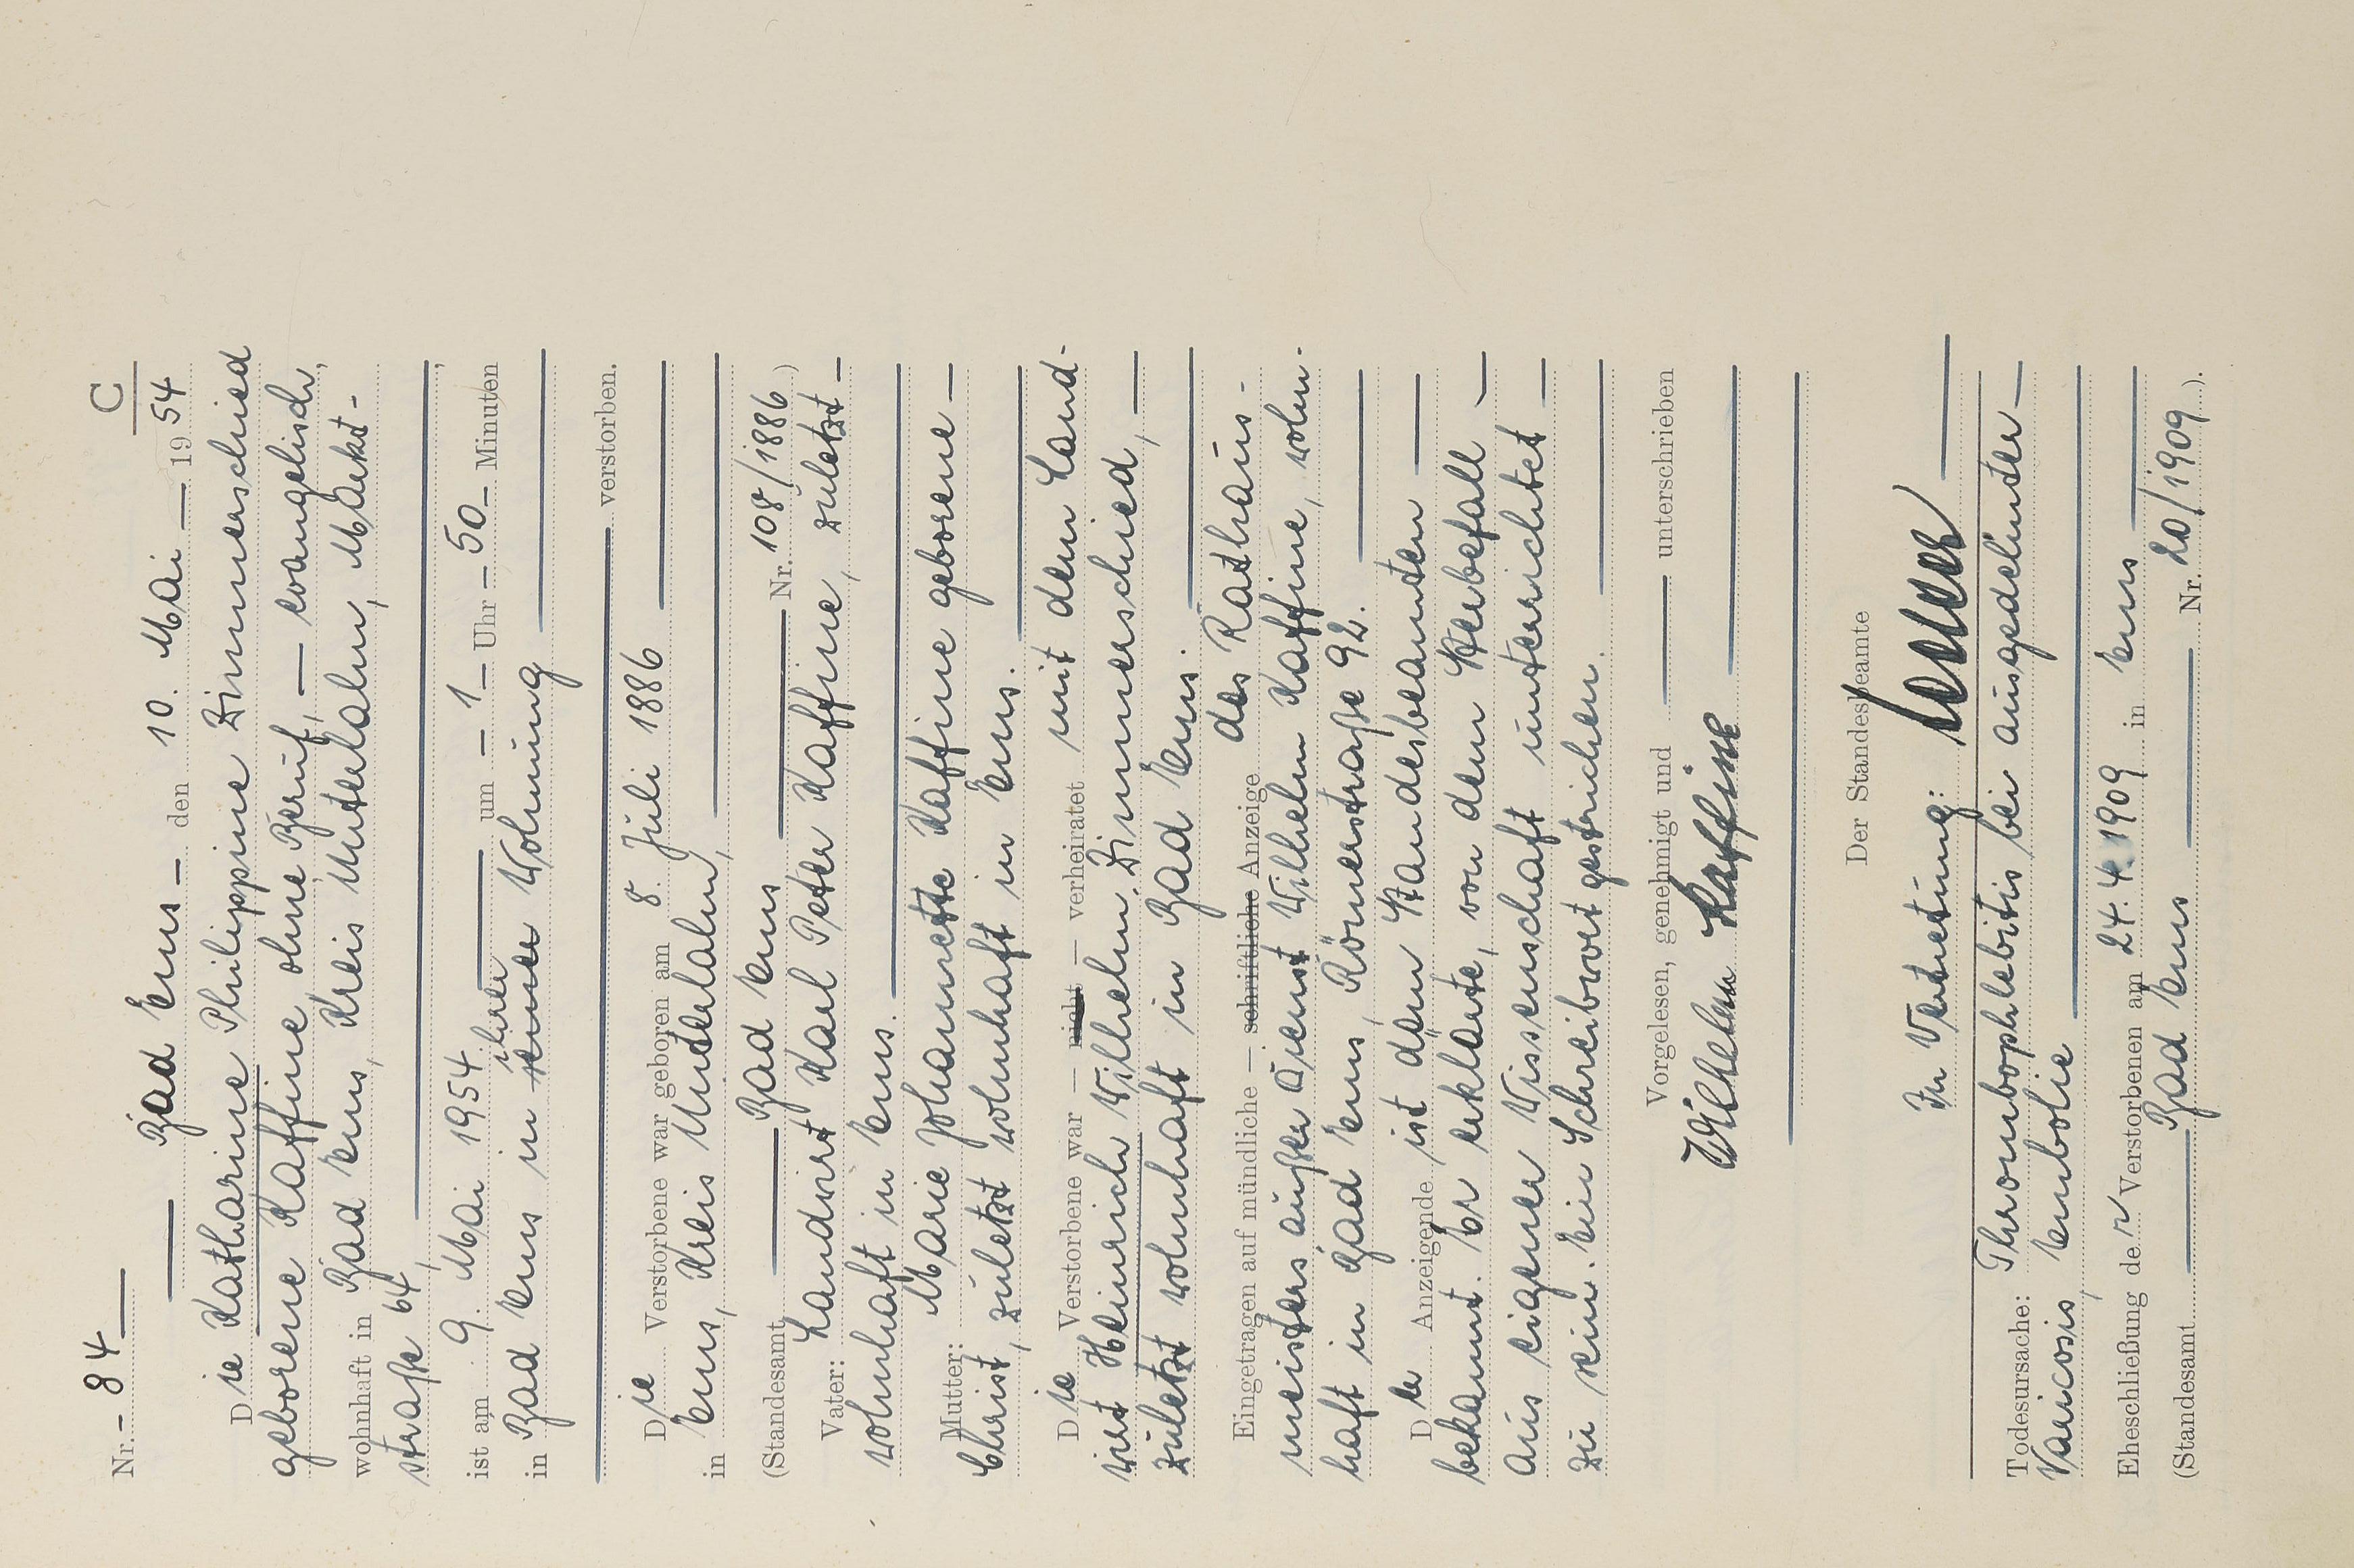 C
Nr. - 84 —
— Bad Ems - den 10. Mai — 19 54
Die Katharine Philippine Zimmerschied
geborene Kaffine ohne Beruf, — evangelisch,
wohnhaft in Bad Ems, Kreis Unterlahn, Markt-
straße 64,
ist am 9. Mai 1954 — um — 1 — Uhr - 50 - Minuten
in Bad Ems in seiner ihrer Wohnung
verstorben.
Die Verstorbene war geboren am 8. Juli 1886
in Ems, Kreis Unterlahn,
(Standesamt — Bad Ems — Nr. 108/1886)
Vater: Landwirt Karl Peter Kaffine, zuletzt -
wohnhaft in Ems.
Mutter: Marie Johannette Kaffine geborene —
Christ, zuletzt wohnhaft in Ems.
Die Verstorbene war — nicht — verheiratet mit dem Land-
wirt Heinrich Wilhelm Zimmerschied, —
zuletzt wohnhaft in Bad Ems.
Eingetragen auf mündliche — schriftliche Anzeige des Rathaus-
meisters außer Dienst Wilhelm Kaffine, wohn-
haft in Bad Ems, Römerstraße 92.
Der Anzeigende ist dem Standesbeamten —
bekannt. Er erklärte, von dem Sterbefall —
aus eigener Wissenschaft unterrichtet —
zu sein. Ein Schreibwort gestrichen.
Vorgelesen, genehmigt und — unterschrieben
Wilhelm Kaffine
Der Standesbeamte
In Vertretung:
Todesursache: Thrombophlebitis bei ausgedehnter —
Varicosis, Embolie
Eheschließung der Verstorbenen am 24.4.1909 in Ems
(Standesamt — Bad Ems — Nr. 20/1909).